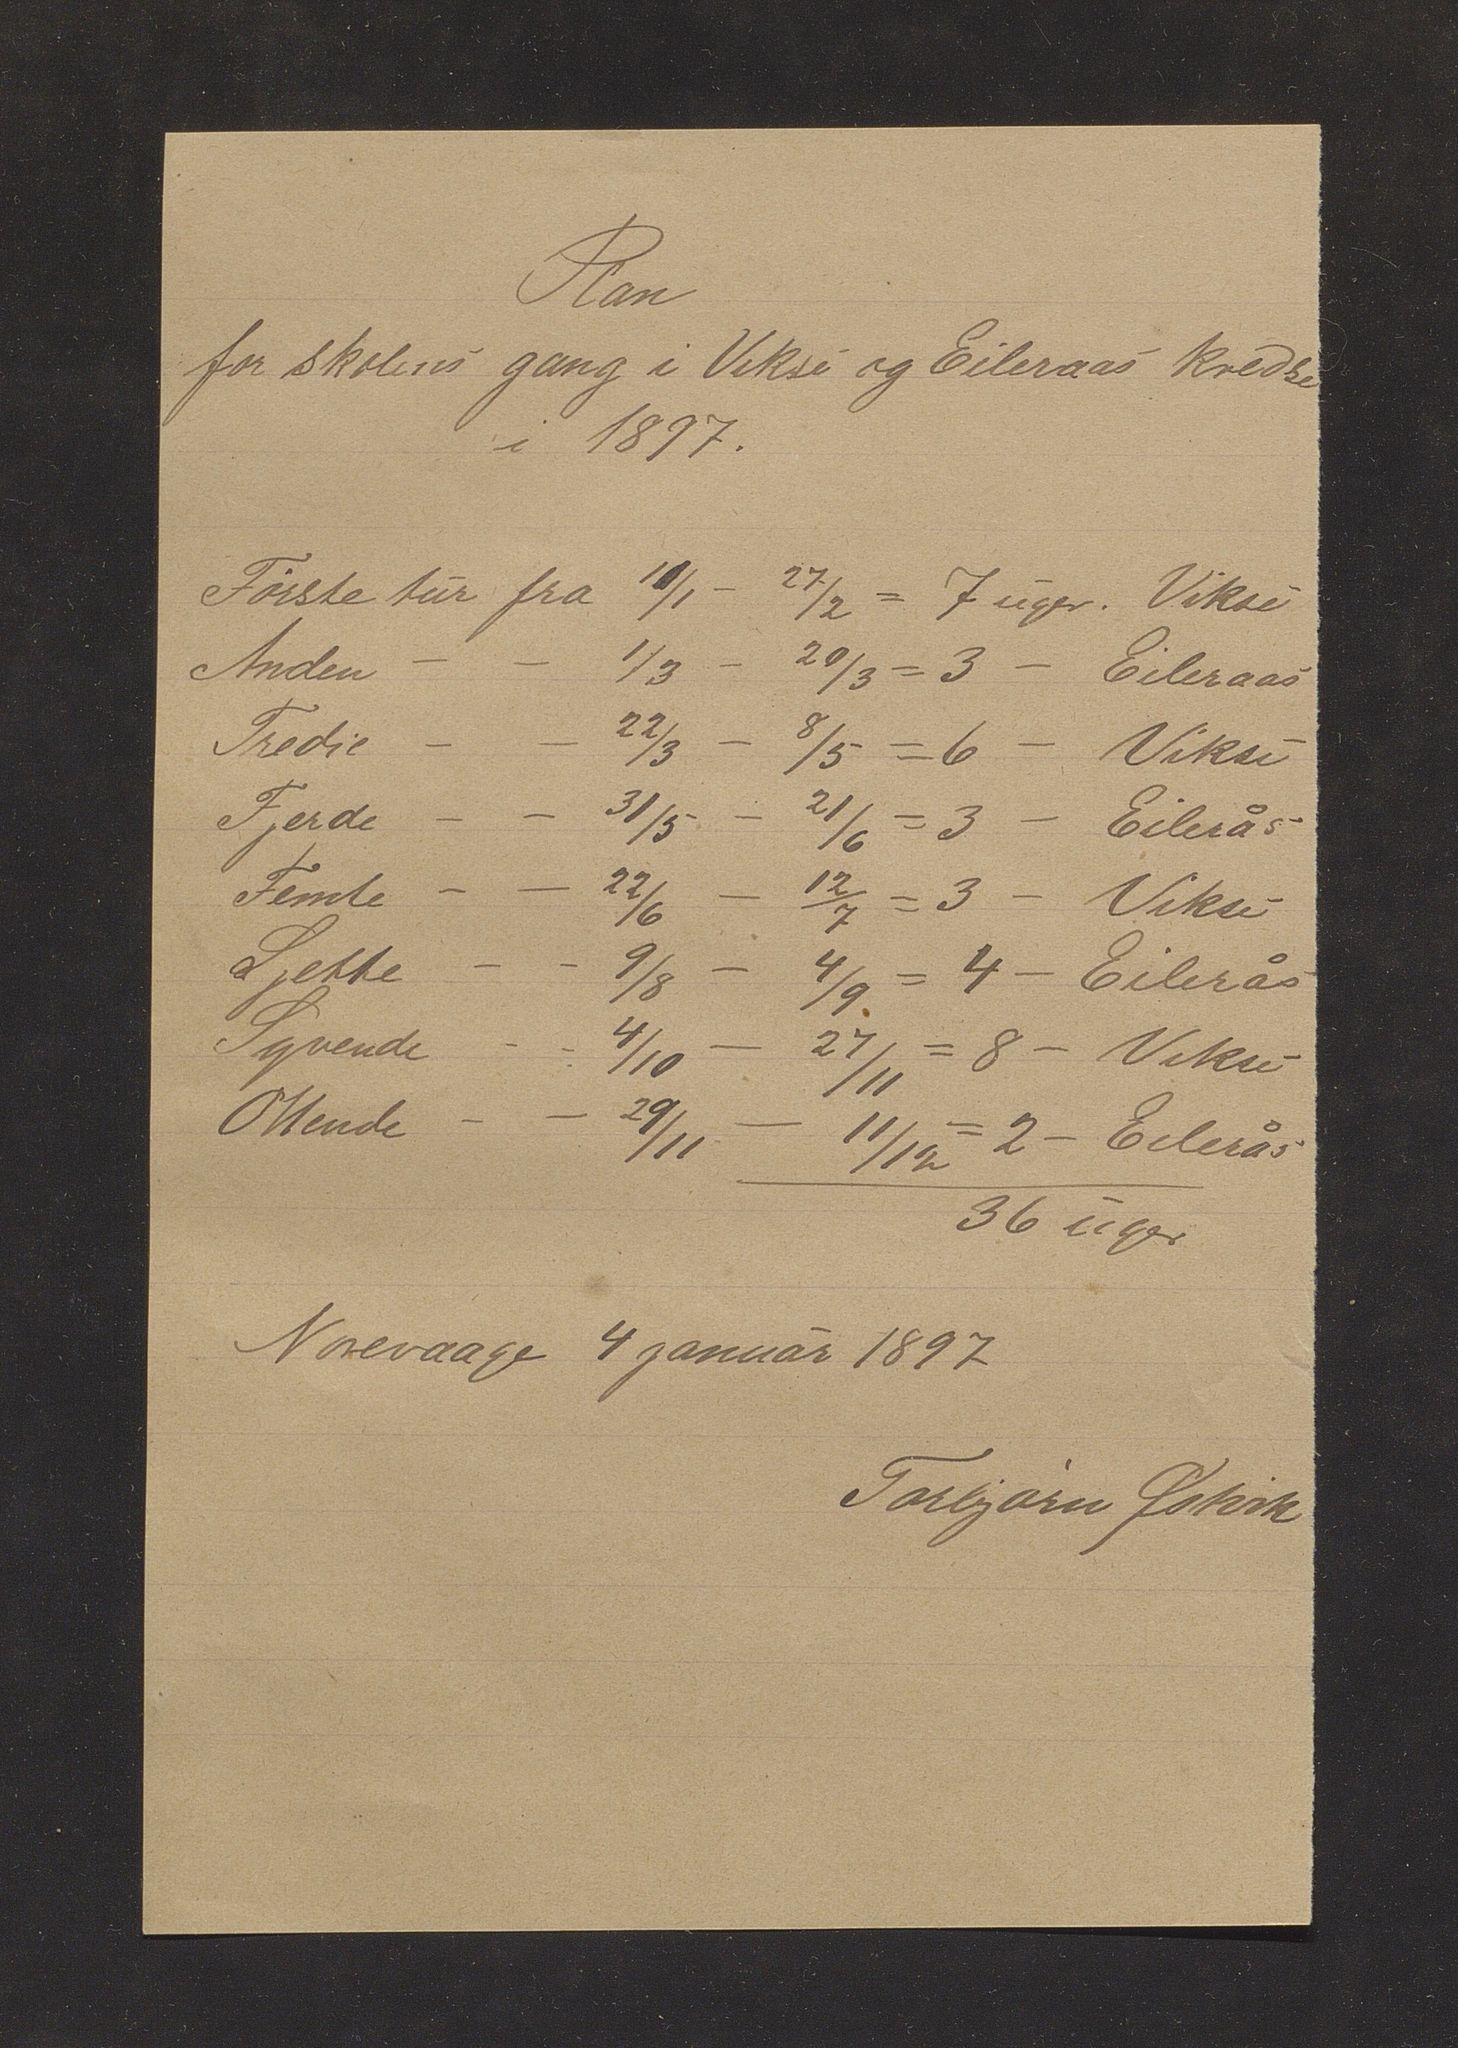 Plan
for skolens gang i Vikse og Eileraas kredse
i 1897.
Første tur fra 11/1 - 27/2 = 7 uger. Vikse
Anden - - 1/3 - 20/3 = 3 - Eileraas
Tredie - - 22/3 - 8/5 = 6 - Vikse
Fjerde - - 31/5 - 21/6 = 3 - Eilerås
Femte - - 22/6 - 12/7 = 3 - Vikse
Sjette - - 9/8 - 4/9 = 4 - Eilerås
Syvende - - 4/10 - 27/11 = 8 - Vikse
Ottende - - 29/11 - 11/12 = 2 - Eilerås
36 uger
Norevaage 4 januar 1897
Torbjørn Østvik